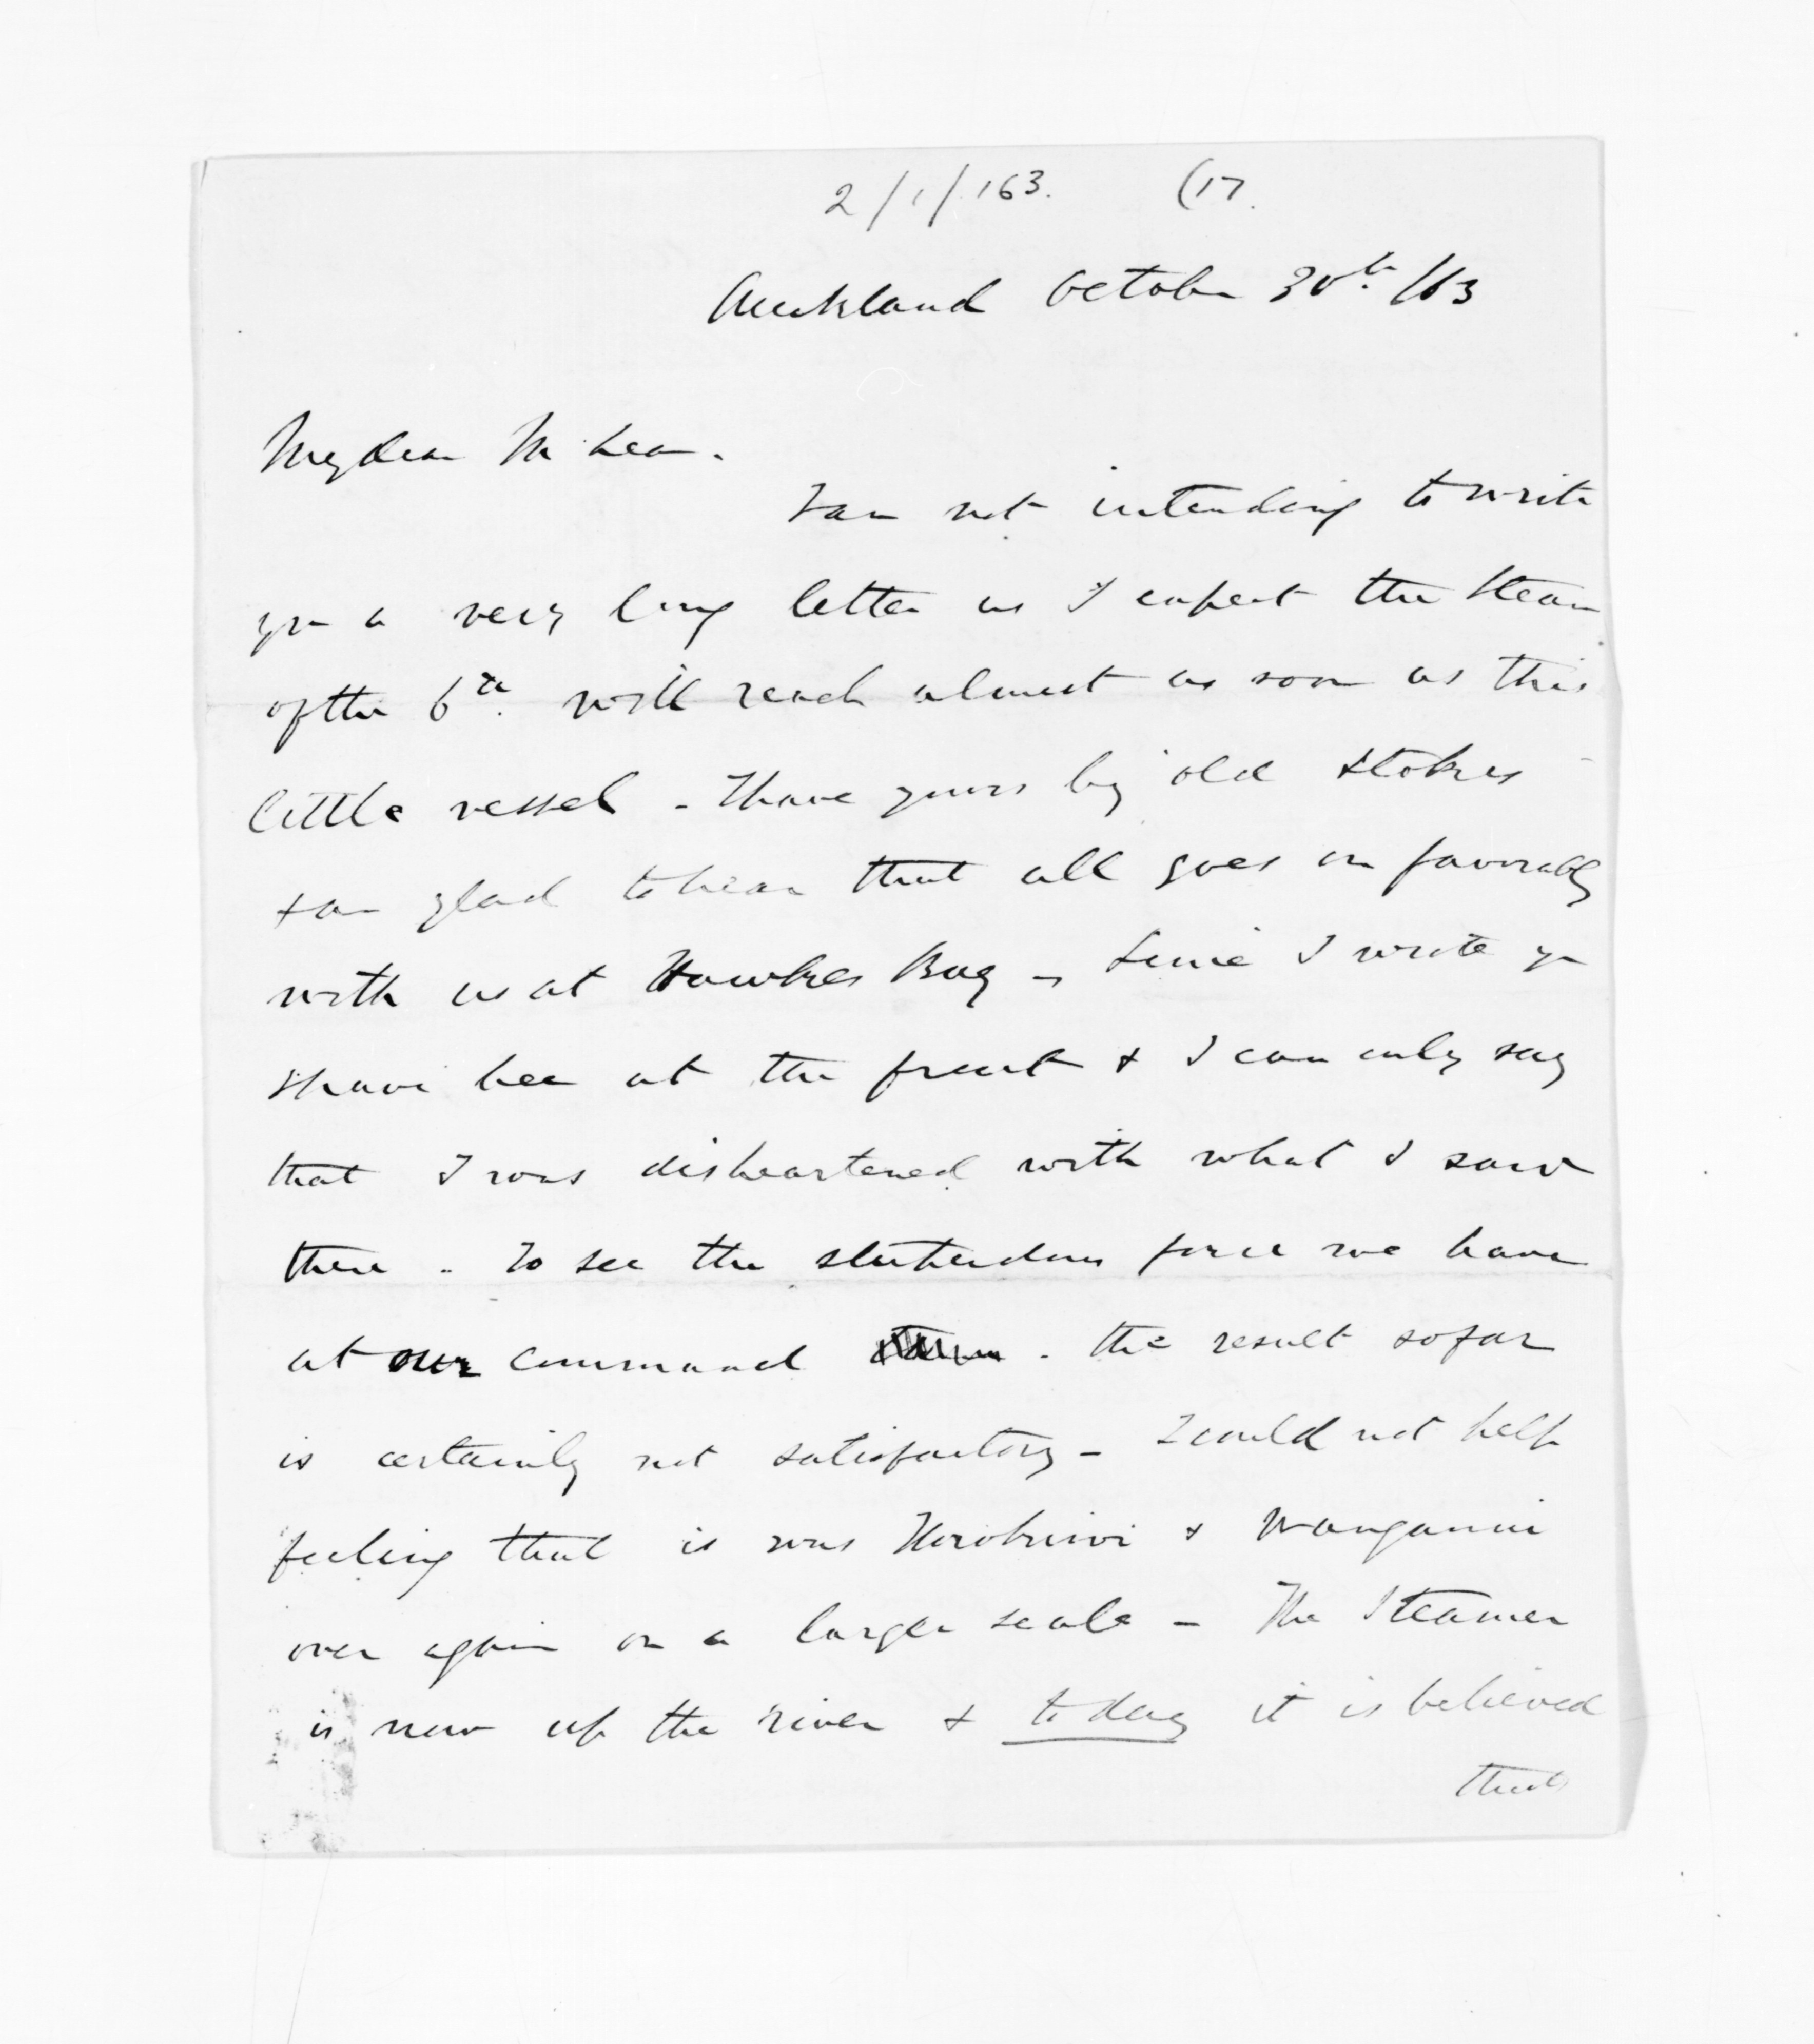 2/1/163. (17.
Auckland October 30th /63
My dear McLean.
I am not intending to write
you a very long letter as I expect the Steamer
of the 6th will reach almost as soon as this
little vessel - I have yours by old Stokes
& am glad to hear that all goes on favorably
with us at Hawkes Bay - Since I wrote you
I have been at the front & I can only say
that I was disheartened with what I saw
there - To see the stupendous force we have
at our command - the result so far
is certainly not satisfactory - I could not help
feeling that is was Horokiwi & Wanganui
over again on a larger scale - The Steamer
is now up the river & to day it is believed
that